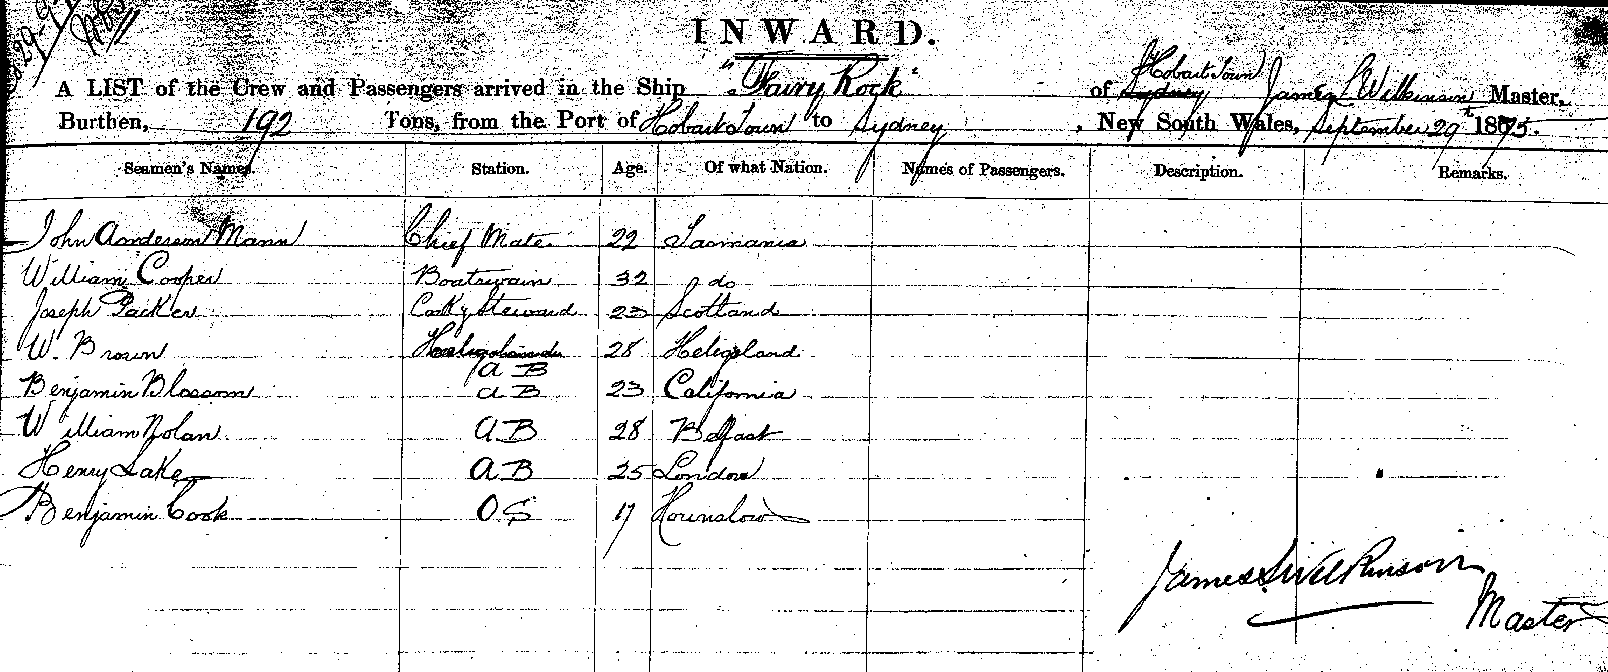 INWARD.
A LIST of the Crew and Passengers arrived in the Ship "Fairy Rock" of Sydney Hobart Town James S Wilkinson Master,
Burthen, 192 Tons, from the Port of Hobart Town to Sydney, New South Wales, September 29th 1875.
Seamen's Names. Station. Age. Of what Nation. Names of Passengers. Description. Remarks.
John Anderson Mann Chief Mate 22 Tasmania
William Cooper Boatswain 32 do
Joseph Packer Cook & Steward 23 Scotland
W. Brown A B 28 Heligoland
Benjamin Blossom A B 23 California
William Nolan A B 28 Belfast
Henry Lake A B 25 London
Benjamin Cook O S 17 Hounslow
James S Wilkinson
Master